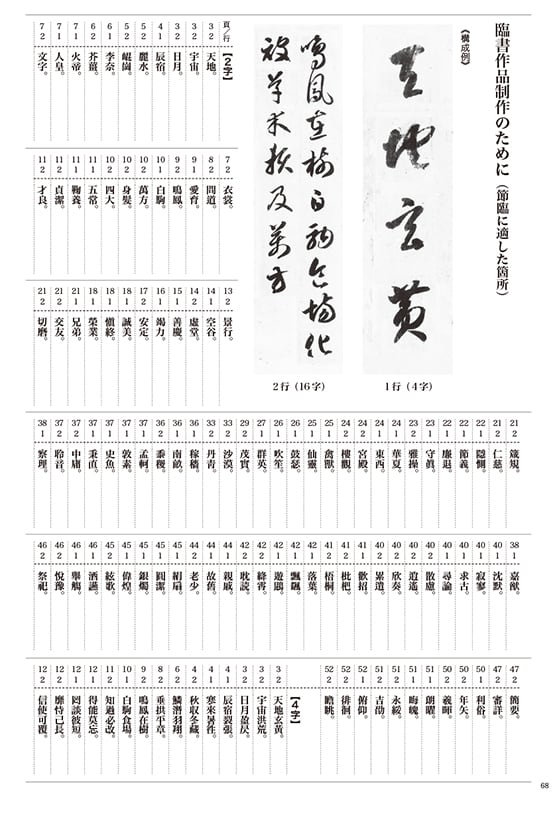 臨書作品制作のために（節臨に適した箇所）
《構成例》
天地玄黄
1行（4字）
鳴鳳在樹白駒食場化
被草木頼及萬方
2行（16字）
頁／行
【2字】
3 2 天地。
3 2 宇宙。
3 2 日月。
4 1 辰宿。
5 2 麗水。
5 2 崐崗。
6 1 李奈。
6 2 芥薑。
7 1 火帝。
7 1 人皇。
7 2 文字。
7 2 衣裳。
8 2 問道。
9 1 愛育。
9 2 鳴鳳。
10 1 白駒。
10 2 萬方。
10 2 身髮。
10 2 四大。
11 1 五常。
11 1 鞠養。
11 2 貞潔。
11 2 才良。
13 2 景行。
14 1 空谷。
14 2 虛堂。
15 1 善慶。
16 1 竭力。
17 2 安定。
18 1 誠美。
18 1 愼終。
18 1 榮業。
21 1 兄弟。
21 2 交友。
21 2 切磨。
21 2 箴規。
21 2 仁慈。
22 1 隱惻。
22 1 節義。
22 1 廉退。
23 1 守眞。
23 2 雅操。
24 1 華夏。
24 1 東西。
24 2 宮殿。
24 2 樓觀。
25 1 禽獸。
25 1 仙靈。
26 1 鼓瑟。
26 1 吹笙。
27 1 群英。
29 2 茂實。
33 1 沙漠。
33 2 丹青。
36 1 稼穡。
36 1 南畝。
36 2 黍稷。
37 1 孟軻。
37 1 敦素。
37 1 史魚。
37 1 秉直。
37 2 中庸。
37 2 聆音。
38 1 察理。
38 1 嘉猷。
40 1 沈默。
40 1 寂寥。
40 1 求古。
40 1 尋論。
40 2 散慮。
40 2 逍遙。
40 2 欣奏。
40 2 累遣。
41 1 歡招。
41 2 枇杷。
41 2 梧桐。
42 1 落葉。
42 1 飄颻。
42 1 遊鵾。
42 2 絳霄。
42 2 耽読。
44 1 親戚。
44 1 故舊。
44 2 老少。
45 1 絹扇。
45 1 圓潔。
45 1 銀燭。
45 1 偉煌。
45 2 絃歌。
46 1 酒讌。
46 1 擧觴。
46 2 悅豫。
46 2 祭祀。
47 2 簡要。
47 2 審詳。
50 1 利俗。
50 2 年矢。
50 2 羲暉。
51 1 朗曜。
51 1 晦魄。
51 2 永綏。
51 2 吉劭。
52 1 俯仰。
52 2 徘徊。
52 2 瞻眺。
【4字】
3 2 天地玄黃。
3 2 宇宙洪荒。
3 2 日月盈昃。
4 1 辰宿裂張。
4 1 寒來暑徃。
4 2 秋收冬藏。
6 2 鱗潛羽翔。
8 2 垂拱平章。
9 2 鳴鳳在樹。
10 1 白駒食場。
11 2 知過必改。
12 1 得能莫忘。
12 1 罔談彼短。
12 2 靡恃己長。
12 2 信使可覆。
68